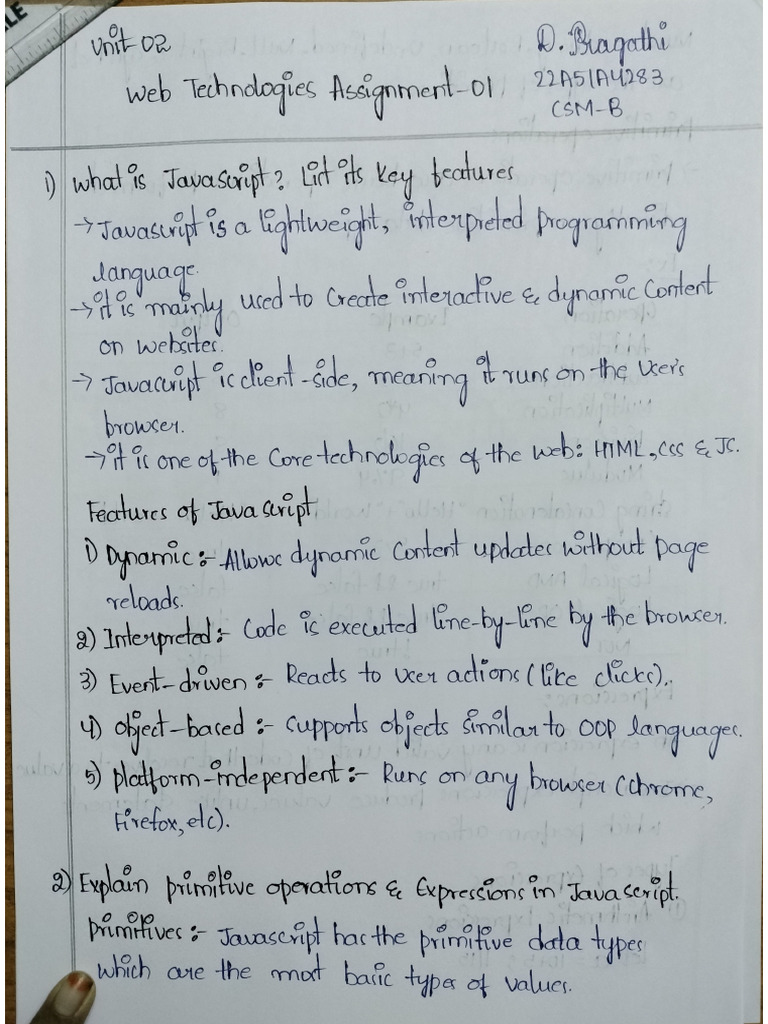 Unit-02
D. Bragathi
Web Technologies Assignment-01
22A51A4283
CSM-B
1) What is Javascript? List its key features
→ Javascript is a lightweight, interpreted programming
language.
→ it is mainly used to create interactive & dynamic content
on websites.
→ Javascript is client-side, meaning it runs on the user's
browser.
→ it is one of the core technologies of the web: HTML, CSS & JS.
Features of Javascript
1) Dynamic:- Allows dynamic content updates without page
reloads.
2) Interpreted:- Code is executed line-by-line by the browser.
3) Event-driven:- Reacts to user actions (like clicks).
4) Object-based:- supports objects similar to OOP languages.
5) Platform-independent:- Runs on any browser (chrome,
Firefox, etc).
2) Explain primitive operations & Expressions in Javascript.
Primitives:- Javascript has the primitive data types
which are the most basic types of values.